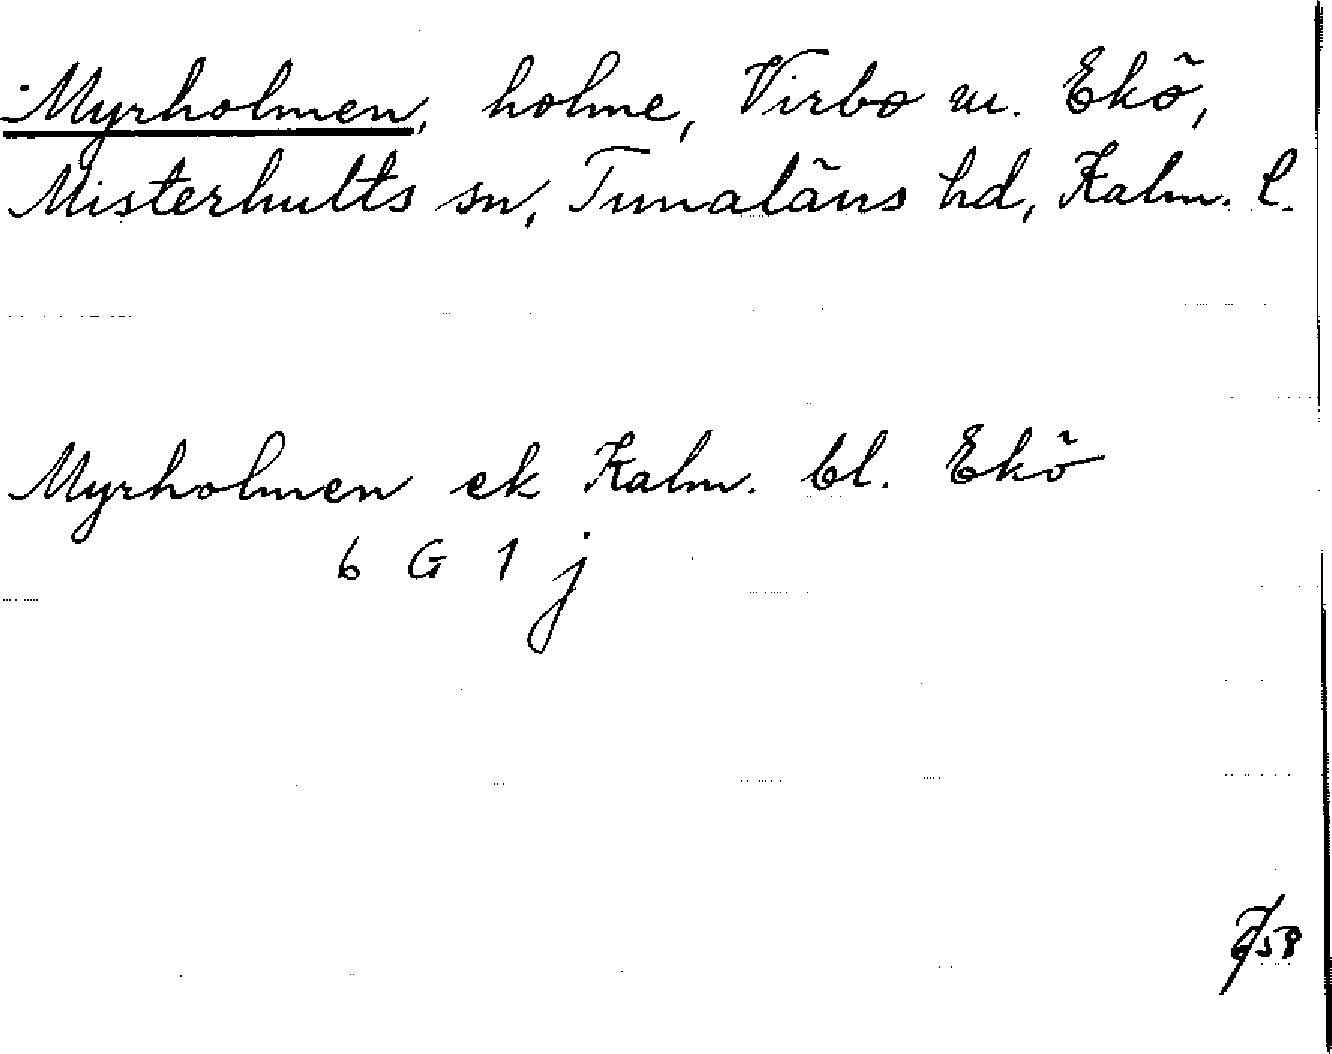 Myrholmen, holme, Virbo m. Ekö,
Misterhults sn, Tunaläns hd, Kalm. l.
Myrholmen ek Kalm. bl. Ekö
6 G 1 j